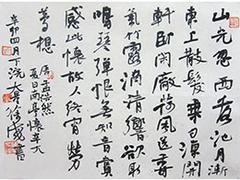 山光忽西落池月漸
東上散髮乘夕涼開
軒卧閑敞荷風送香
氣竹露滴清響欲取
鳴琴彈恨無知音賞
感此懷故人終宵勞
夢想 唐孟浩然
夏日南亭懷辛大
辛卯四月下浣 書